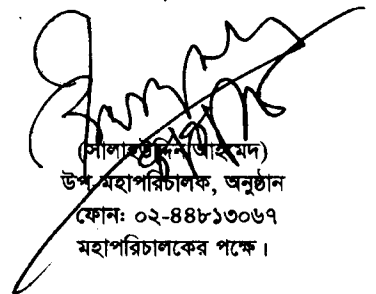 (সালাহউদ্দিন আহমেদ)
উপ-মহাপরিচালক, অনুষ্ঠান
ফোনঃ ০২-৪৪৮১৩০৬৭
মহাপরিচালকের পক্ষে।